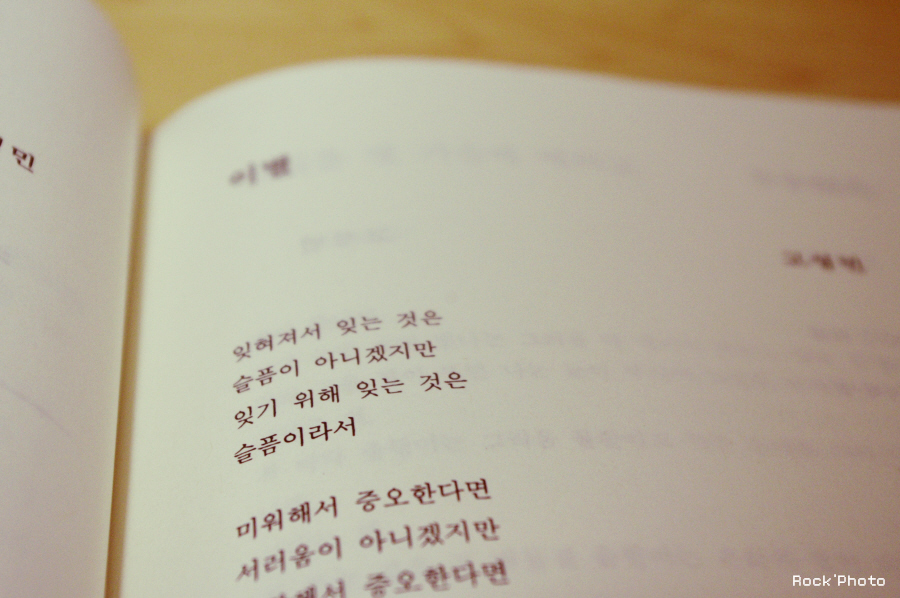 이별
잊혀져서 잊는 것은
슬픔이 아니겠지만
잊기 위해 잊는 것은
슬픔이라서
미워해서 증오한다면
서러움이 아니겠지만
증오한다면
Rock'Photo